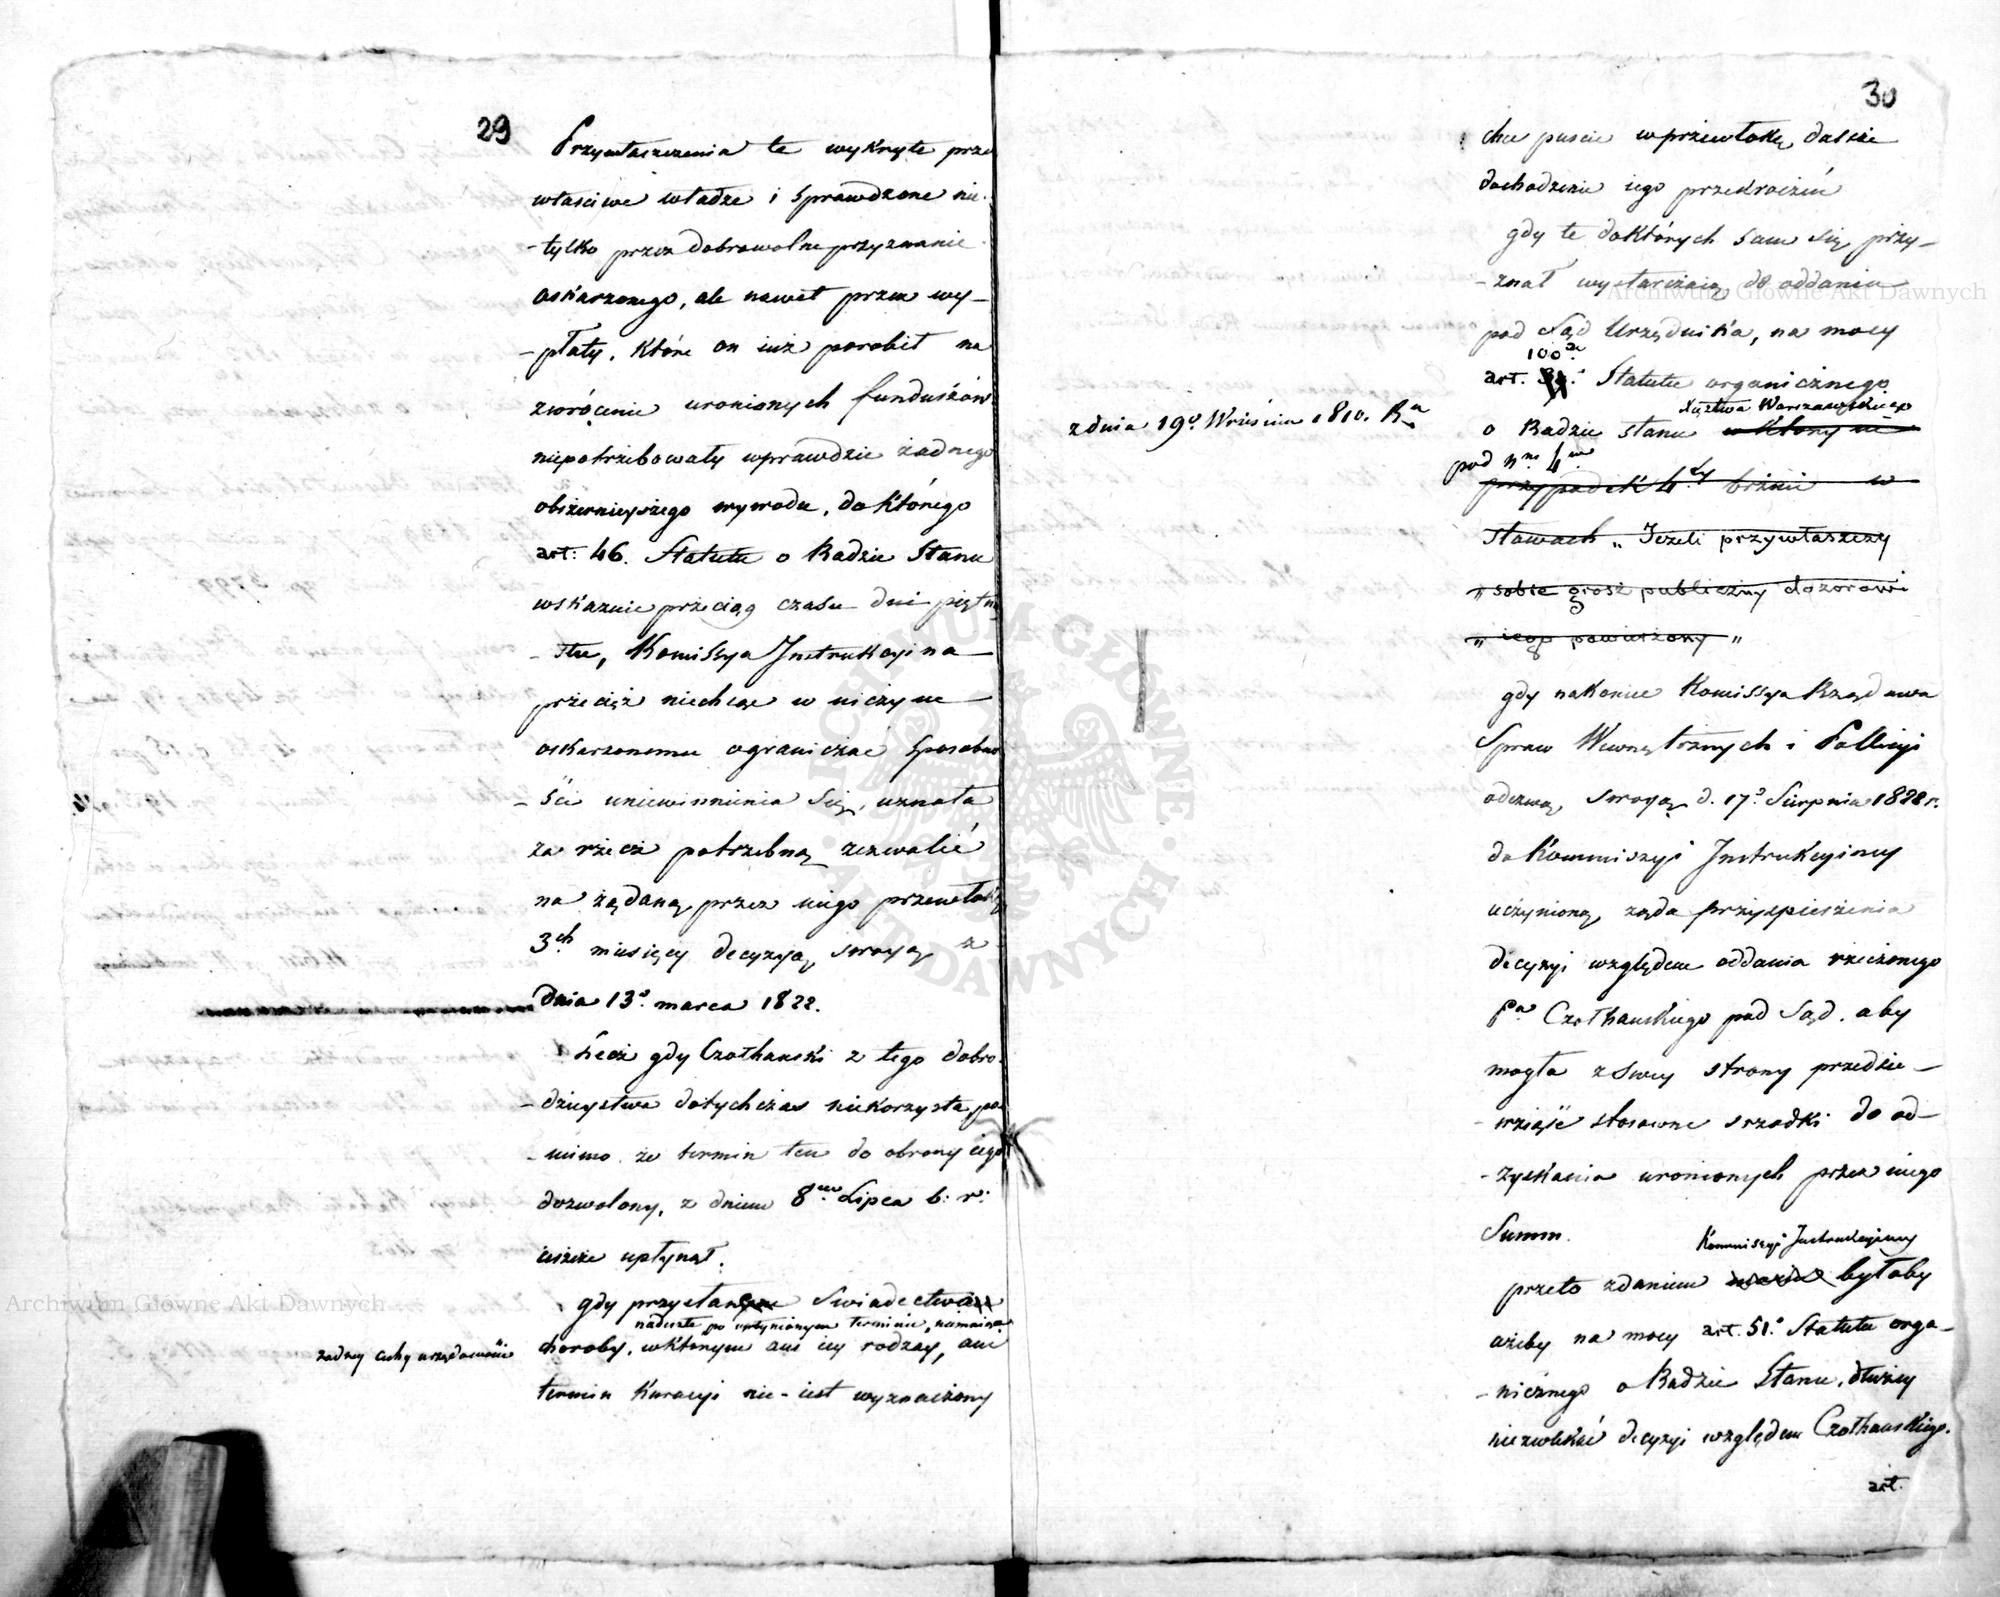 29
Przywłaszczenia te wykryte prze
właściwe władze i sprawdzone nie-
-tylko przez dobrowolne przyznanie
oskarzonego, ale nawet przez wy-
-płaty, które on iuż porobił na
zwrócenie uronionych funduszów
niepotrzebowały wprawdzie żadnego
obszernieyszego wywodu, do którego
art: 46. Statutu o Radzie Stanu
wskazuie przeciąg czasu dni piętna
-stu, Komissya Instrukcyina
przecięż niechcąc w niczym
oskarzonemu ograniczać sposobno
-ści uniewinnienia się, uznała
za rzecz potrzebną zezwolić
na żądaną przez niego przewłokę
3ch miesięcy decyzyą swoyą z
dnia 13o marca 1822.
Lecz gdy Czołhański z tego dobro-
-dzieystwa dotychczas niekorzysta, po
-mimo że termin ten do obrony iego
dozwolony, z dniem 8m Lipca b: r:
ieszcze upłynął.
gdy przysłane Swiadectwo
nadeszłe po upłynionym terminie, niemaiące
żadney cechy urzędowéi
choroby, w którym ani iey rodzay, ani
termin Kuracyi nie-iest wyznaczony
30
chce puscić w przewłokę dalsze
dochodzenie iego przekroczeń
gdy te do których sam się przy-
-znał wystarczaią do oddania
pod Sąd Urzędnika, na mocy
100o
art. Statutu organicznego
Xięztwa Warszawskiego
z dnia 19o Września 1810. Ra
o Radzie stanu w którym iest
pod Nro 4m
przypadek 4ty brzmi w
słowach „Jeżeli przywłaszczy
„sobie grosz publiczny dozorowi
„iego powierzony„
gdy nakoniec Komissya Rządowa
Spraw Wewnętrznych i Policyi
odezwą swoyą d. 17o Sierpnia 1822 r.
do Kommiszyi Instrukcyiney
uczynioną żąda przyspieszenia
decyzyi względem oddania rzeczonego
Pa Czołhańskiego pod Sąd, aby
mogła z swey strony przedsie-
-wziąść stosowne srzodki do od-
-zyskania uronionych przez niego
Summ.
Kommiszyi Instrukcyiney
przeto zdaniem byłoby
ażeby na mocy art. 51o Statutu orga-
-nicznego o Radzie Stanu, dłużey
niezwlekać decyzyi względem Czołhańskiego.
art.
Archiwum Główne Akt Dawnych
Archiwum Główne Akt Dawnych
ARCHIWUM GŁÓWNE AKT DAWNYCH